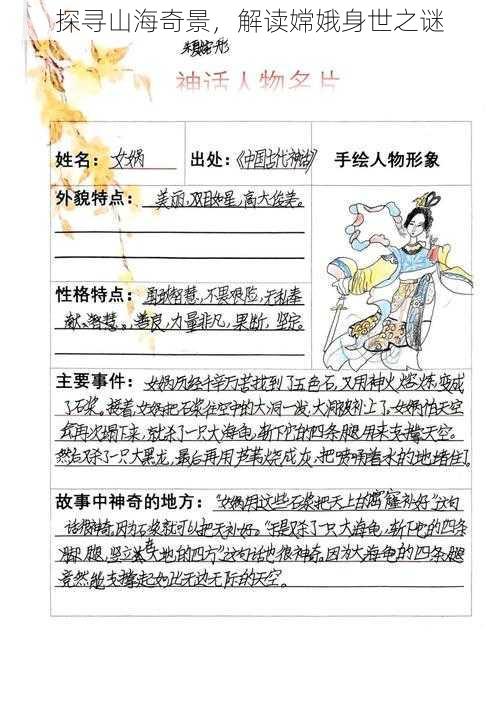 探寻山海奇景，解读嫦娥身世之谜
神话人物名片
姓名：女娲 出处：《中国古代神话》 手绘人物形象
外貌特点：美丽，双目如星，高大俊美。
性格特点：勇敢智慧，不畏艰险，无私奉
献、智慧。善良，力量非凡，果断，坚定。
主要事件：女娲历经千辛万苦找到了五色石，又用神火燃炼变成
了石浆。接着女娲把石浆往空中的大洞一泼，大洞被补上了。女娲怕天空
会再次塌下来，就杀了一只大海龟，斩下它的四条腿用来支撑天空。
然后又杀了一只大黑龙，最后再用芦苇烧成灰，把喷涌着水的地堵住了
故事中神奇的地方：“女娲用这些石浆把天上的窟窿补好”这句
话很神奇，因为石浆就可以把天补好。“于是又杀了一只大海龟，斩下它的四条
腿，竖立在大地的四方”这句话也很神奇。因为大海龟的四条腿
竟然能支撑起如此无边无际的天空。